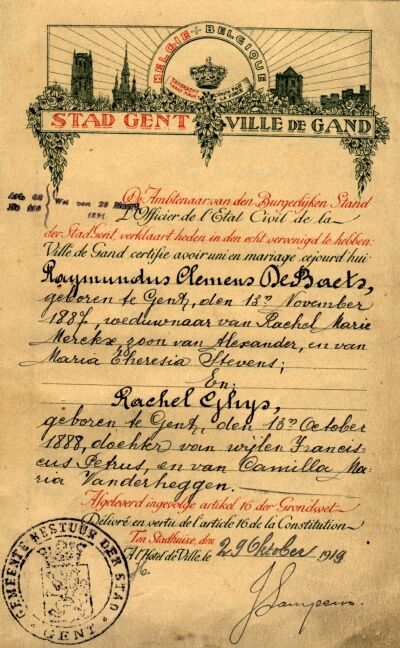 BELGIE + BELGIQUE
STAD GENT VILLE DE GAND
Wet van 25 Maart
1891
De Ambtenaar van den Burgerlijken Stand
L'Officier de l'Etat Civil de la
der Stad Gent, verklaart heden in den echt vereenigd te hebben:
Ville de Gand certifie avoir uni en mariage cejourd'hui
Raymundus Clemens De Baets,
geboren te Gent, den 13n November
1887, weduwnaar van Rachel Marie
Merckx zoon van Alexander, en van
Maria Theresia Stevens;
En:
Rachel Ghys,
geboren te Gent, den 13n October
1888, dochter van wijlen Francis-
cus Petrus, en van Camilla Ma-
ria Vanderheggen.
Afgeleverd ingevolge artikel 16 der Grondwet
Délivré en vertu de l'article 16 de la Constitution
Ten Stadhuize, den
A l'Hôtel de Ville, le 29 Oktober 1919
GEMEENTE BESTUUR DER STAD
GENT